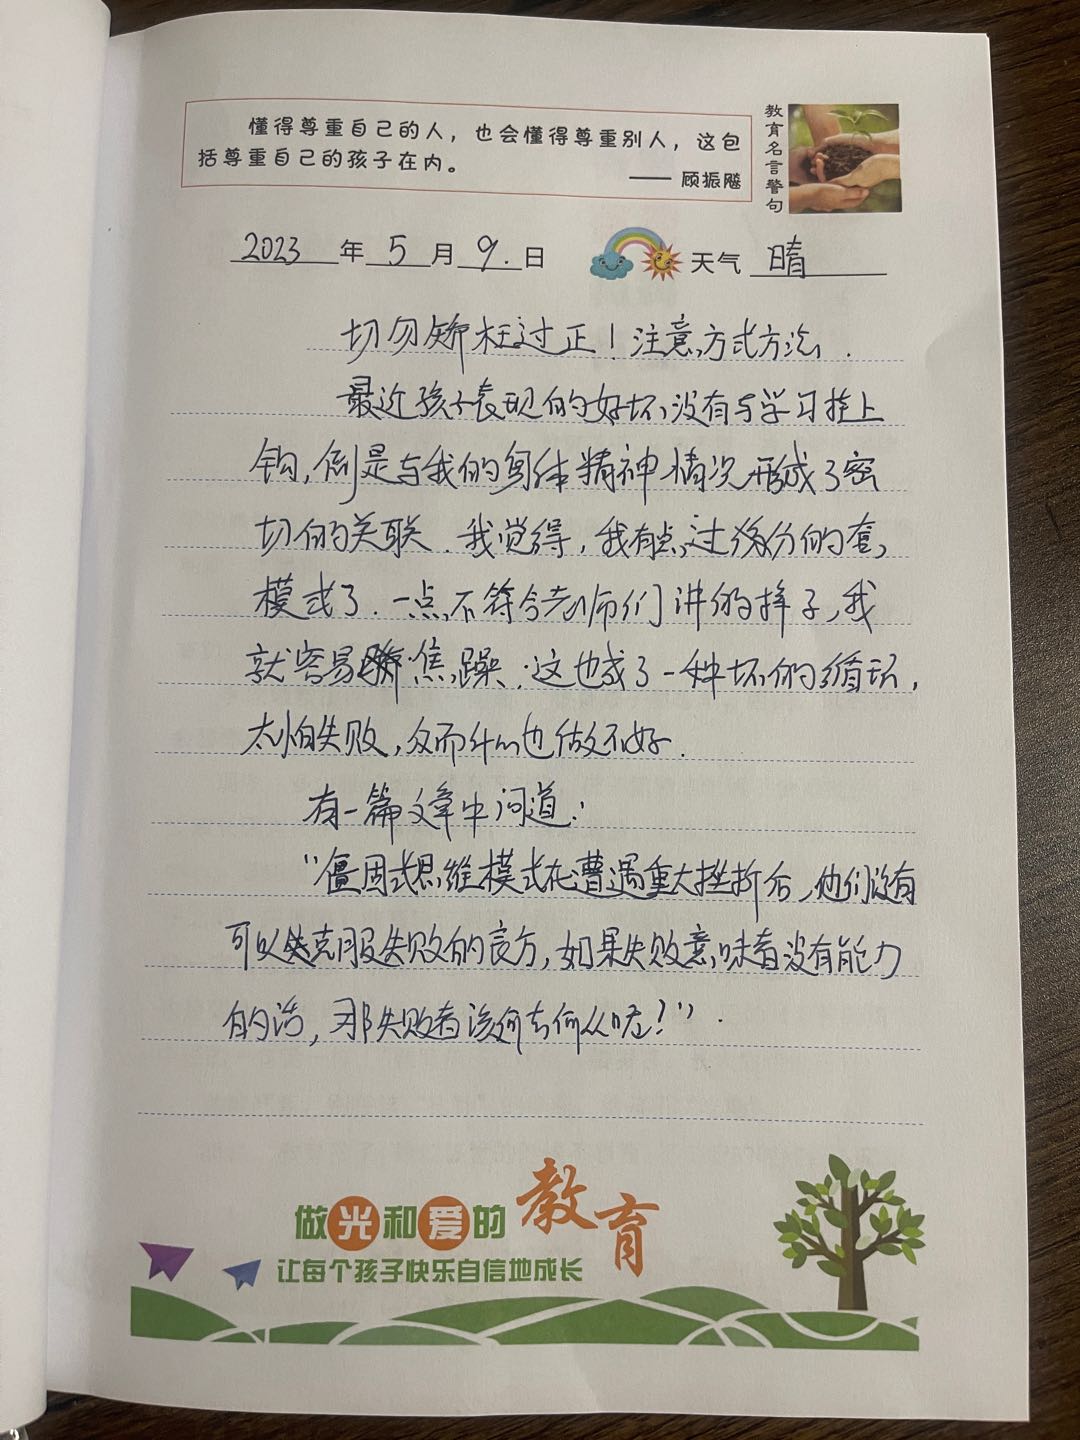 懂得尊重自己的人，也会懂得尊重别人，这包
括尊重自己的孩子在内。
—— 顾振飚
教育名言警句
2023年5月9.日 天气 晴
切勿矫枉过正！注意方式方法.
最近孩子表现的好坏没有与学习挂上
钩,倒是与我的身体精神情况形成了密
切的关联.我觉得,我有点过份的套
模式了.一点不符合老师们讲的样子,我
就容易焦躁.这也成了一种坏的循环,
太怕失败,反而什么也做不好.
有一篇文章中问道:
“僵固式思维模式在遭遇重大挫折后,他们没有
可以克服失败的良方,如果失败意味着没有能力
的话,那失败者该何去何从呢?”.
做光和爱的教育
让每个孩子快乐自信地成长